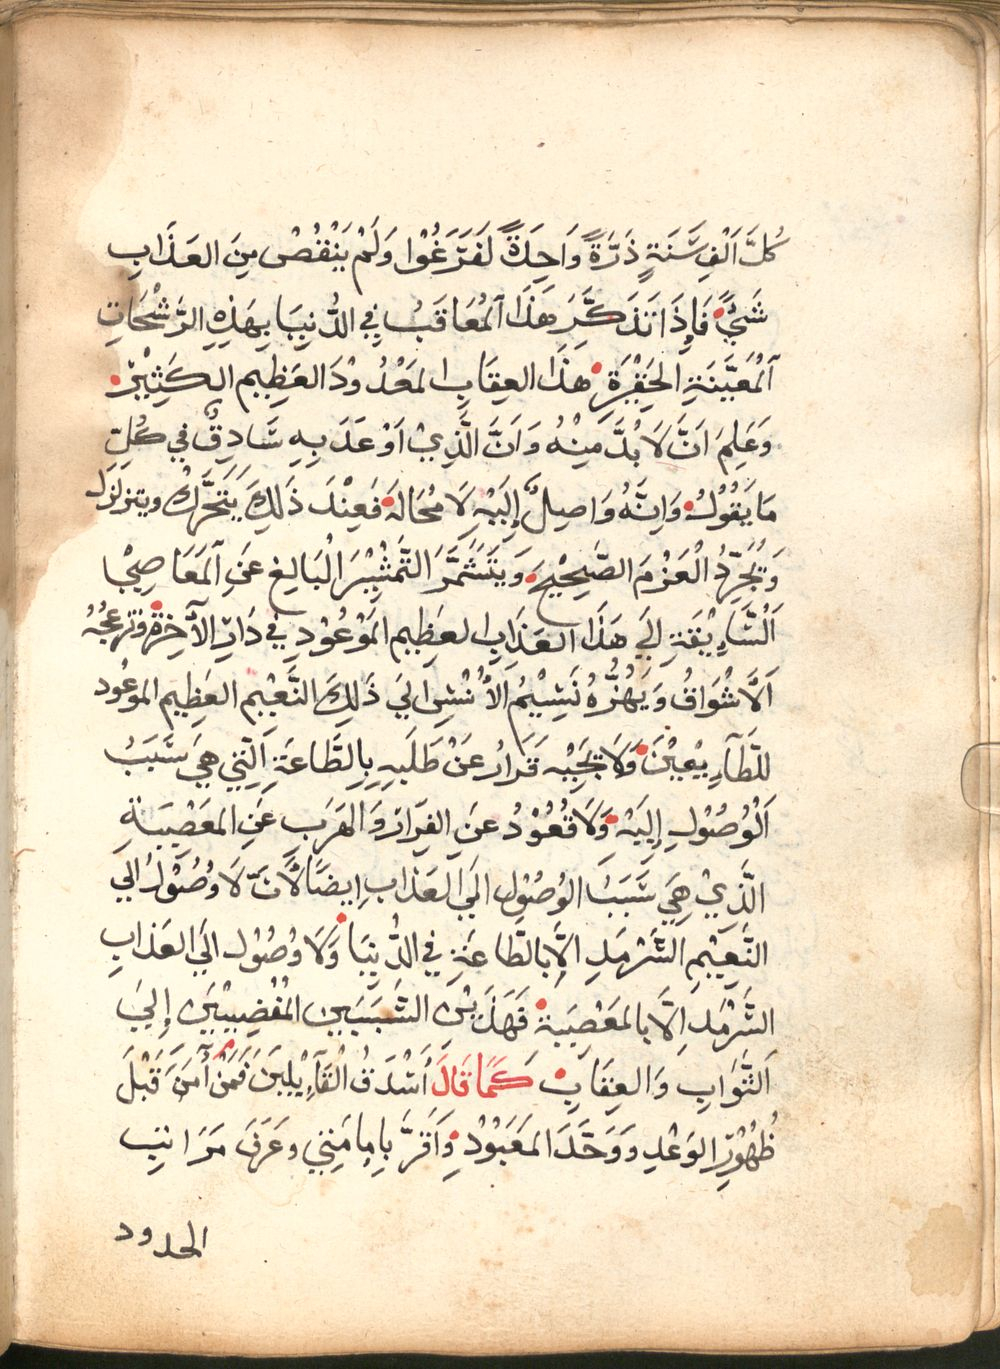 كُلَّ اَلْفِ سَّنَةٍ ذَرَّةً وَاحِدَةً لَفَرَّغُوا وَلَمْ يَنْقُصْ مِنَ العَذَابِ
شَيْءً فَإِذَا تَذَكَّرَ هَذَا آلمُعَاقَبُ فِي الدُّنِيَا بِهَذِهِ الرَّشْحَاتِ
آلمُعَيَّنَةِ الحَقِيْرَةِ هَذَا العِقَابِ المَعْدُودَ العَظِيم الكَثِيْرْ
وَعَلِمَ اَنَّ لَا بُدَّ مِنْهُ وَاَنَّ الَّذِيْ اَوْعَدَ بِهِ سَّادِقٌ فِي كُلِّ
مَا يَقُوْلُ وَاِنَّهُ وَاصِلٌ إِلَيْهِ لَا مُحَالَة فَعِنْدَ ذَلِكَ يَتَحَرَّكْ ويتزلزل
وَيُجَرِّدُ الْعَزْمَ الصَّحِيْحَ وَيَتَشَمَّرَ التَّمْشِيْرَ الْبَالِغ عَنِ آلمَعَاصِيْ
اَلْسَّاِيْقَةِ اِلَي هَذَا العَذَابِ العَظِيم المَوْعُوْدِ فِي دَارِ الآخِرَةِ وَتزعجُهُ
اَلْاشْوَاقُ وَيَهُزُّهُ نَسِيْمُ الأُنْسِ اِلَي ذَلِكَ النَّعِيْم العَظِيم الموعُود
للطَّآيِعِيْنَ وَلَا يَجِيْه قَرَارُ عَنْ طَلَبِهِ بِالطَّاعَةِ اَلَّتِي هِيَ سَّبَبُ
اَلْوُصُوْلِ إِلَيْهِ وَلَا قُعُوْدُ عَنِ الفِرَارِ وَالهَرَبِ عَنِ المَعْصِيَةِ
الَّذِيْ هِيَ سَّبَبُ الوُصُوْلِ اِلَي العَذَابِ اِيضًا لأَنَّ لَا وُصُوْلُ اِلَي
النَّعِيْمِ السَّرْمَدِ اِلَّا بِالطَّاعَةِ فِي الدُّنِيَا وَلَا وُصُوْل اِلَي العَذابِ
السَّرْمَدِ اِلَّا بالمَعْصِيَة فَهَذَيْنِ السَّبَبَيْنِ الْمُفْضِيِيْنَ إِلَي
اَلثَّوَابِ وَالعِقَابِ كَمَا قَالَ أَسْدَقُ القَآيِلِيْنَ فَمَنْ آمَنَ قَبْلَ
ظُهُوْرِ الوَعْدِ وَوَحَّدَ المَعَبُوْدْ وَاَقَرَّ بِاِمَامَتِيْ وعَرَفَ مَرَاتِبَ
الحدود